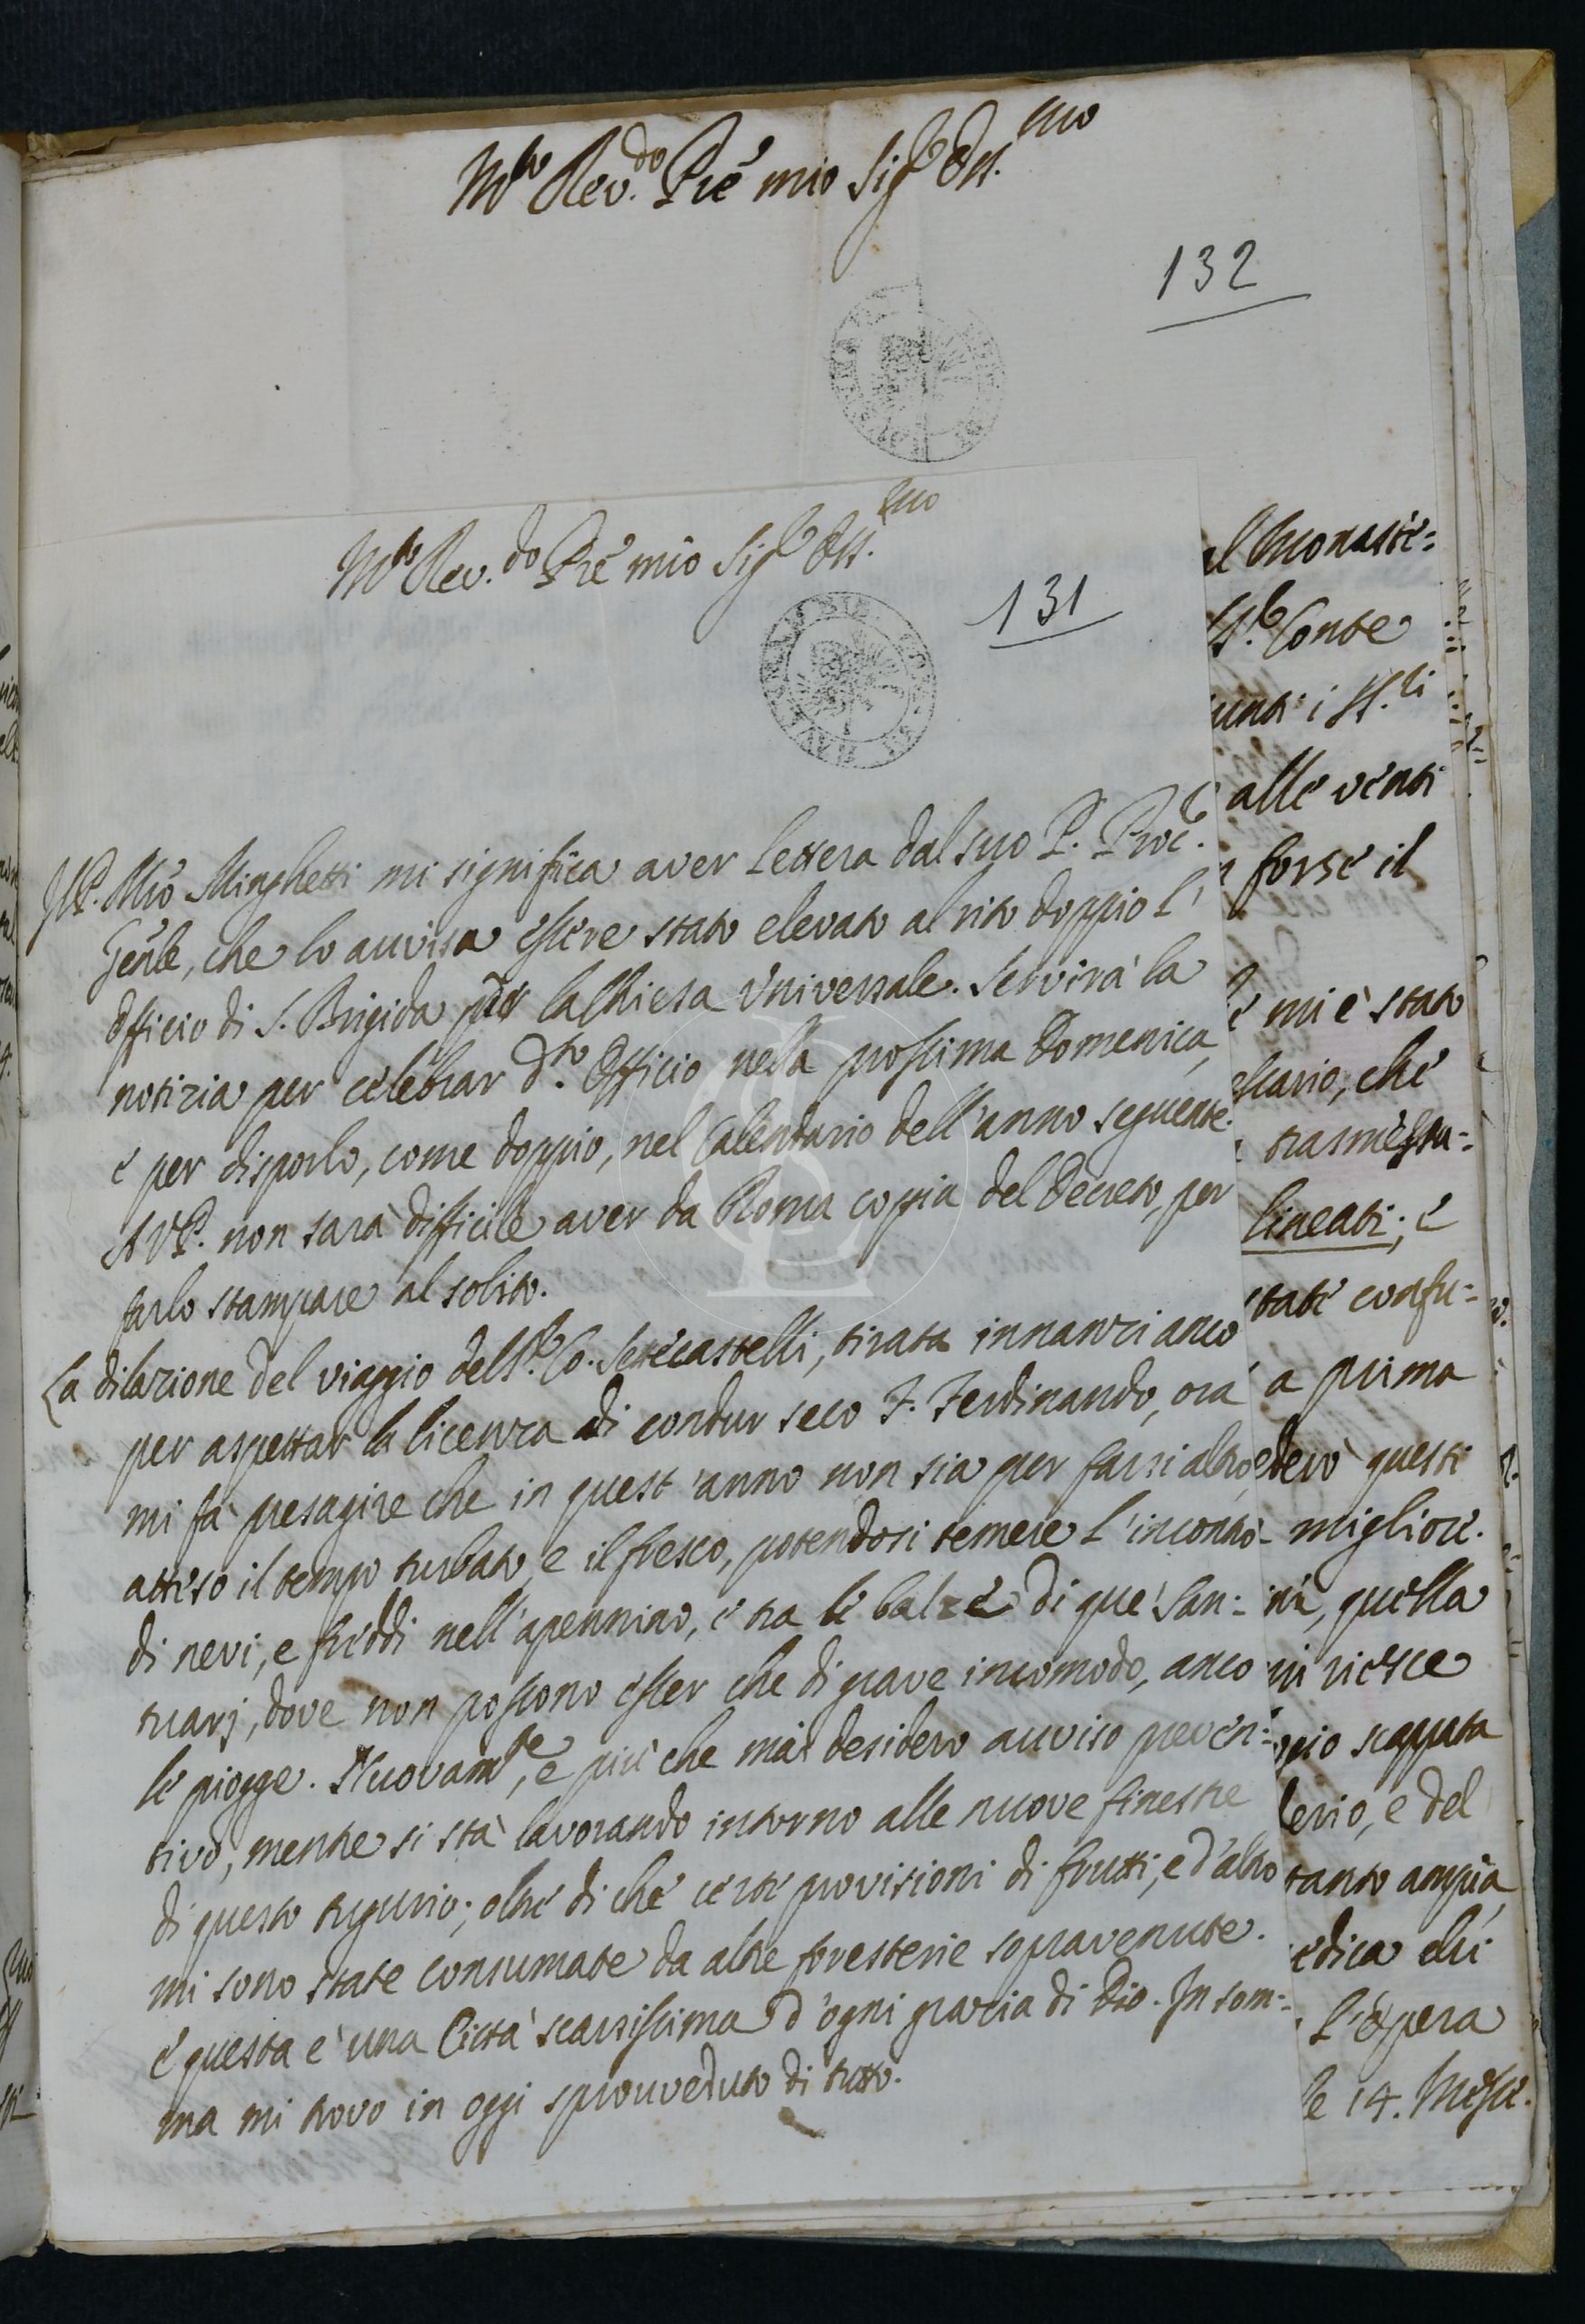 M.to Rev.do Pre mio Sig.r Oss.mo
132
M.to Rev.do Pre mio Sig.r Oss.mo
131
Il P. Mro Minghetti mi significa aver lettera dal suo P. Proc.r
Gen̄le, che lo avvisa essere stato elevato al rito doppio l'
Officio di S. Brigida per la Chiesa Universale. Servirà la
notizia per celebrar d.to Officio nella prossima Domenica,
e per disporlo, come doppio, nel Calendario dell'anno seguente.
A V. P. non sarà difficile aver da Roma coppia del Decreto, per
farlo stampare al solito.
La dilazione del viaggio del S.r Co. Settecastelli, tirata innanzi anco
per aspettar la licenza di condur seco F. Ferdinando, ora
mi fa presagire che in quest'anno non sia per farsi altro,
atteso il tempo turbato, e il fresco, potendosi temere l'incontro
di nevi, e freddi nell'apennino, e tra le balze di que' San=
tuarj, dove non possono esser che di grave incomodo, anco
le piogge. Nuovam.te, e più che mai desidero avviso preven=
tivo, mentre si stà lavorando intorno alle nuove finestre
di questo tugurio; oltre di che certe provisioni di frutti, e d'altro
mi sono state consumate da altre foresterie sopravenute.
e questa è una Città scarsissima d'ogni grazia di Dio. In som=
ma mi trovo in oggi sprouveduto di tutto.
l Monaste=
S.r Conte
unti i SS.ti
alle venti
forse il
mi è stato
ssario, che
trasmessa=
lineati; e
tate confu=
a prima
derò questi
migliore.
quella
riesce
scappata
lerio, e del
tanto ampia
edica chi
L'opera
le 14. Messe.